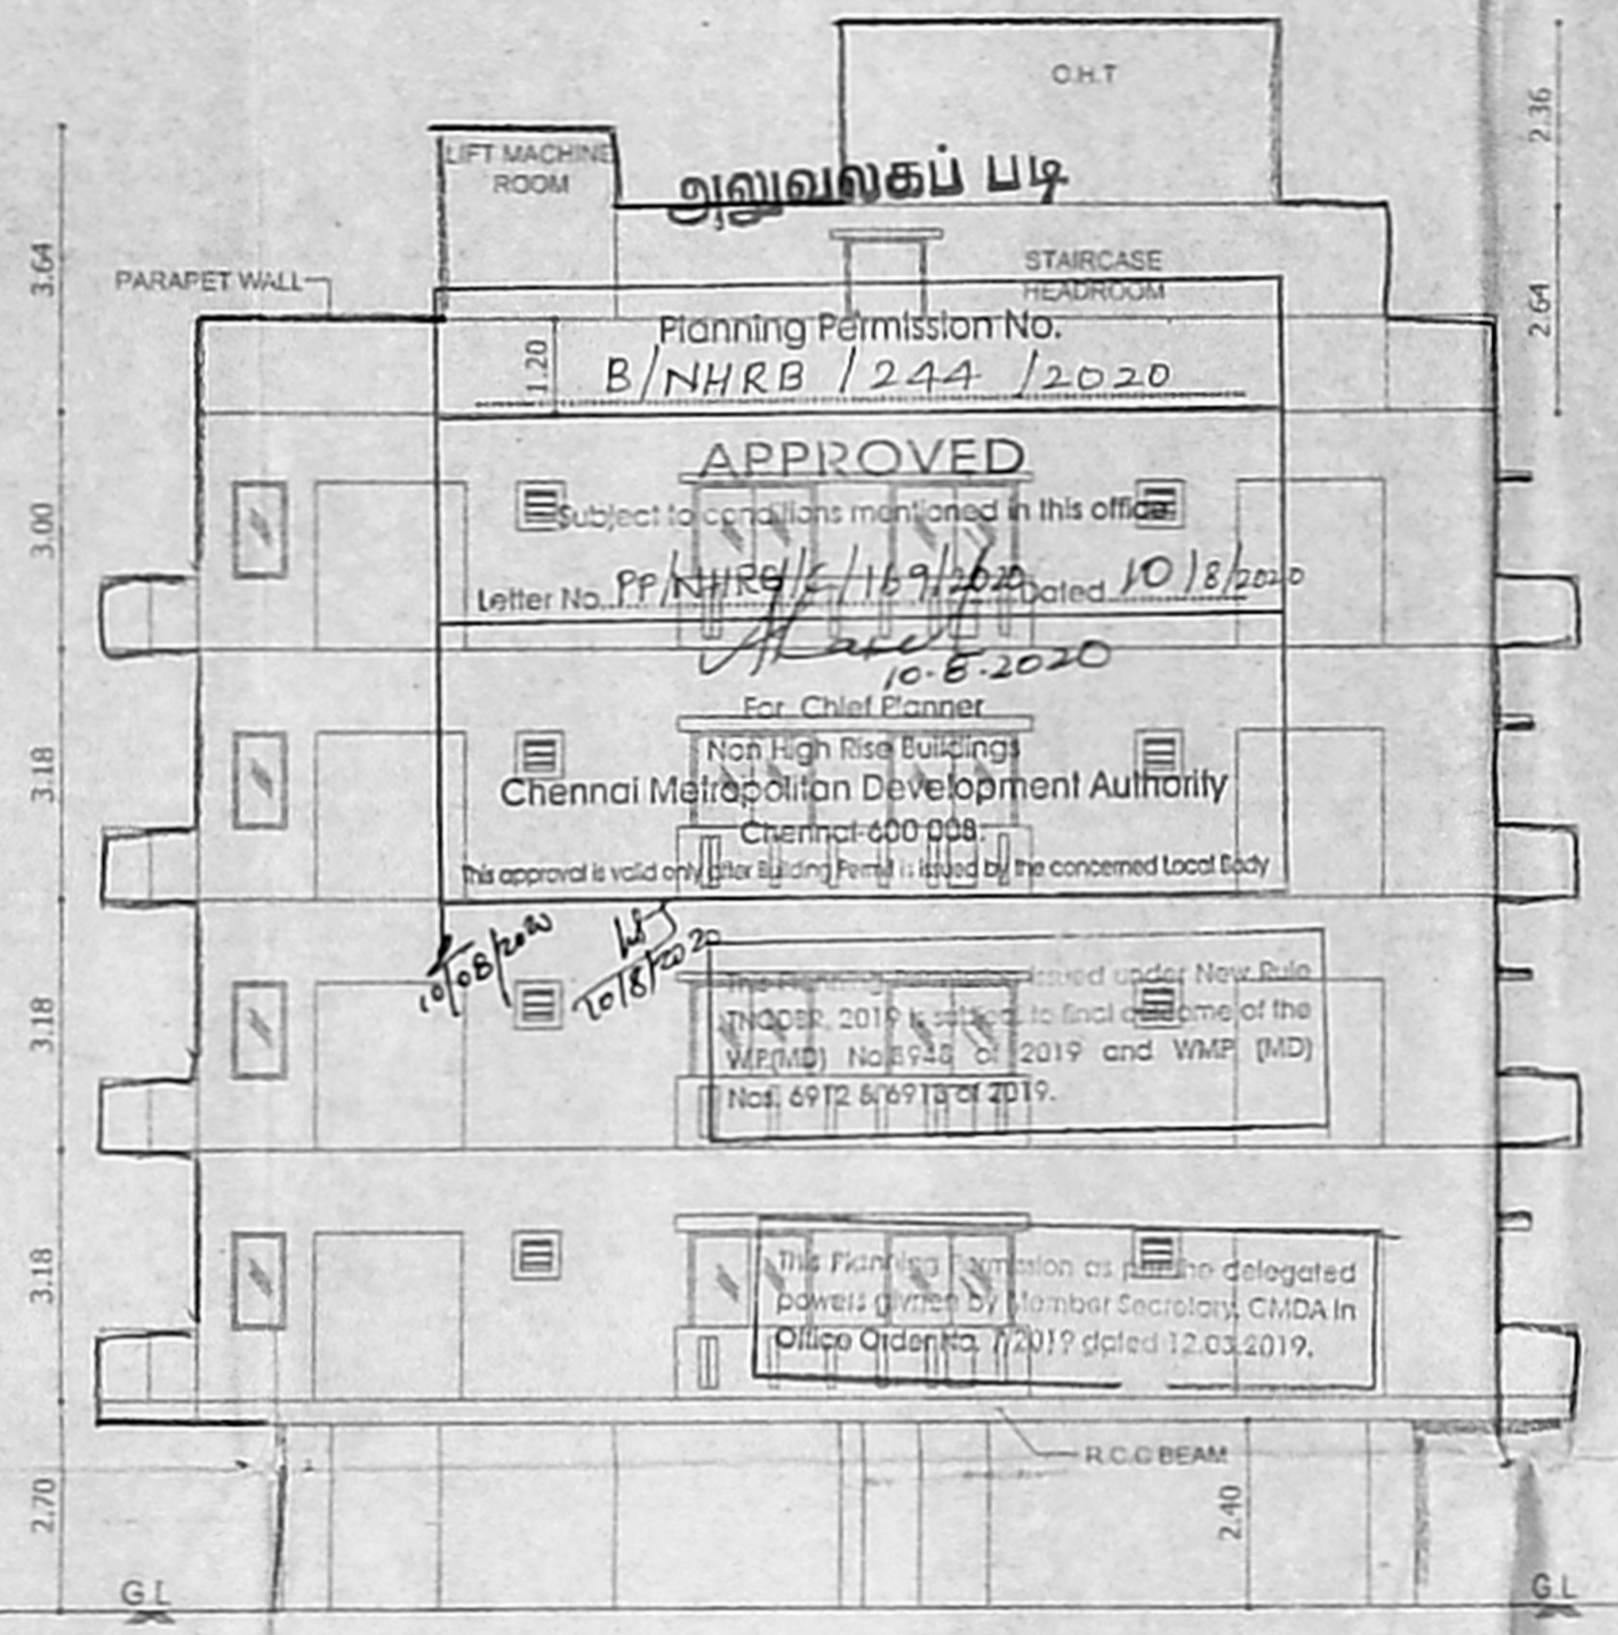 O.H.T
2.36
LIFT MACHINE
ROOM
அலுவலகப் படி
3.64
PARAPET WALL
STAIRCASE
HEADROOM
2.64
1.20
Planning Permission No.
B/NHRB/244/2020
APPROVED
Subject to conditions mentioned in this office
3.00
Letter No. PP/NHRB/C/169/2020 Dated 10/8/2020
10.8.2020
For Chief Planner
Non High Rise Buildings
3.18
Chennai Metropolitan Development Authority
Chennai-600 008.
This approval is valid only after Building Permit is issued by the concerned Local Body
10/08/2020
10/8/2020
This Planning Permission issued under New Rule
TNCDBR, 2019 is subject to final outcome of the
3.18
W.P(MD) No.8948 of 2019 and WMP (MD)
Nos. 6912 & 6913 of 2019.
3.18
This Planning Permission as per the delegated
powers given by Member Secretary, CMDA in
Office Order No. 7/2019 dated 12.03.2019.
R.C.C BEAM
2.70
2.40
G.L
G.L